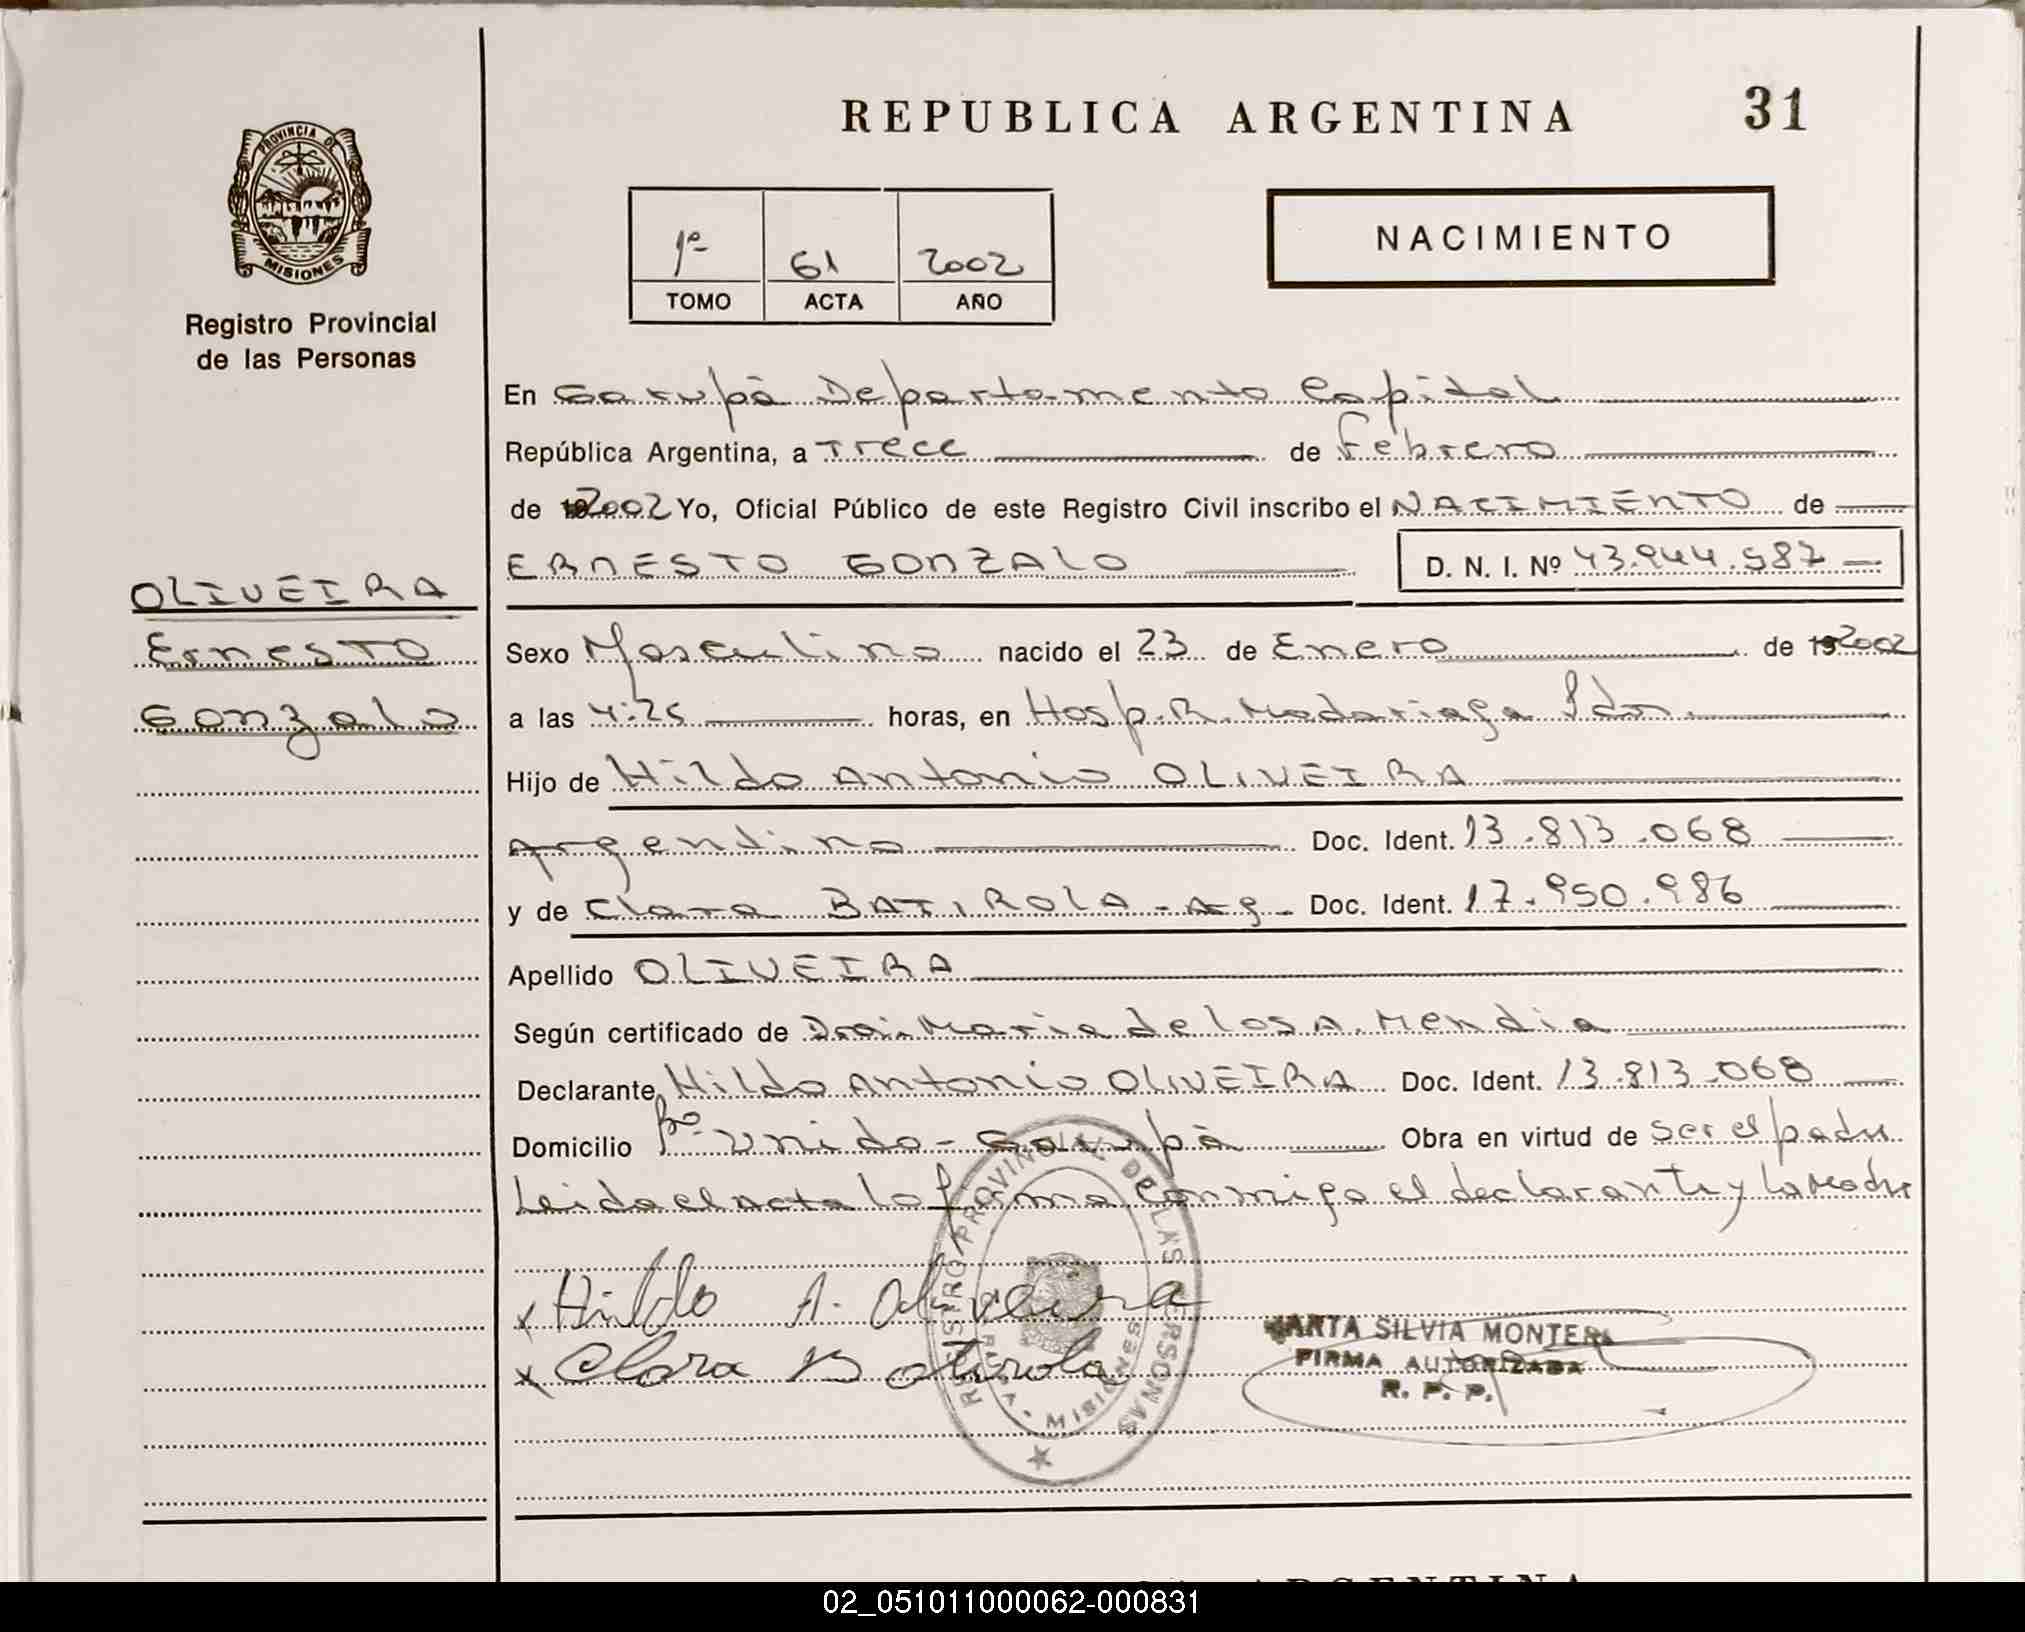 REPUBLICA ARGENTINA 31
PROVINCIA DE
MISIONES
Registro Provincial
de las Personas
1º 61 2002
TOMO ACTA AÑO
NACIMIENTO
En Garupà Departamento Capital
República Argentina, a Trece de Febrero
de 2002 Yo, Oficial Público de este Registro Civil inscribo el NACIMIENTO de
ERNESTO GONZALO D. N. I. Nº 43.944.587
OLIVEIRA
Ernesto
Gonzalo
Sexo Masculino nacido el 23 de Enero de 192002
a las 4:25 horas, en Hosp. R. Madariaga Pdas.
Hijo de Hildo Antonio OLIVEIRA
Argentino Doc. Ident. 13.813.068
y de Clara BATIROLA - Arg - Doc. Ident. 17.950.986
Apellido OLIVEIRA
Según certificado de Dra: Maria de los A. Mendia
Declarante Hildo Antonio OLIVEIRA Doc. Ident. 13.813.068
Domicilio Bº Unido - Garupà Obra en virtud de ser el padre
Leida el acta la firma conmigo el declarante y la Madre
x Hildo A. Oliveira
x Clara Batirola
REGISTRO PROVINCIAL DE LAS PERSONAS
MISIONES
MARTA SILVIA MONTER
FIRMA AUTORIZADA
R. P. P.
ARGENTINA
02_051011000062-000831